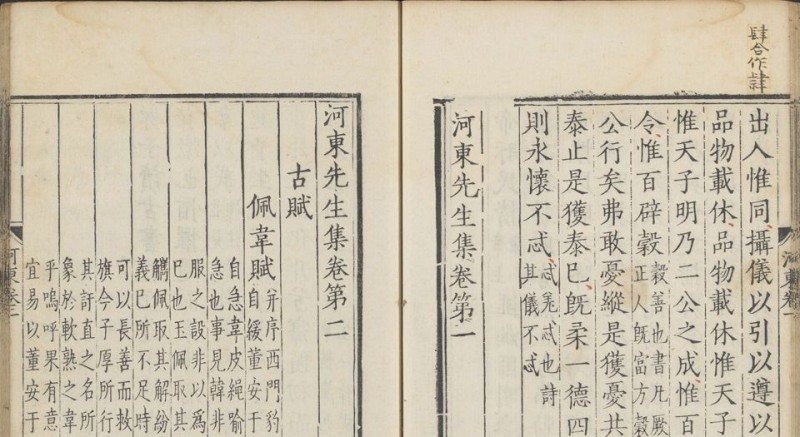 肆合作
出入惟同攝儀以引以遵以
品物載休品物載休惟天子
惟天子明乃二公之成惟百
令惟百辟穀
穀善也書凡厥
正人旣富方穀
公行矣弗敢憂縱是獲憂共
泰止是獲泰已旣柔一德四
則永懷不忒
忒也詩
其儀不忒
河東先生集卷第一
河東卷一
河東先生集卷第二
古賦
佩韋賦
并序西門豹
自緩董安于
自急韋皮繩喻
急也事見韓非
服之設非以為
巳也玉佩取其
觿佩取其解紛
義已所不足時
可以長善而救
旗今子厚所行
其訐直之名所
象於軟熟之韋
乎嗚呼果有意
宜易以董安于
河東卷二